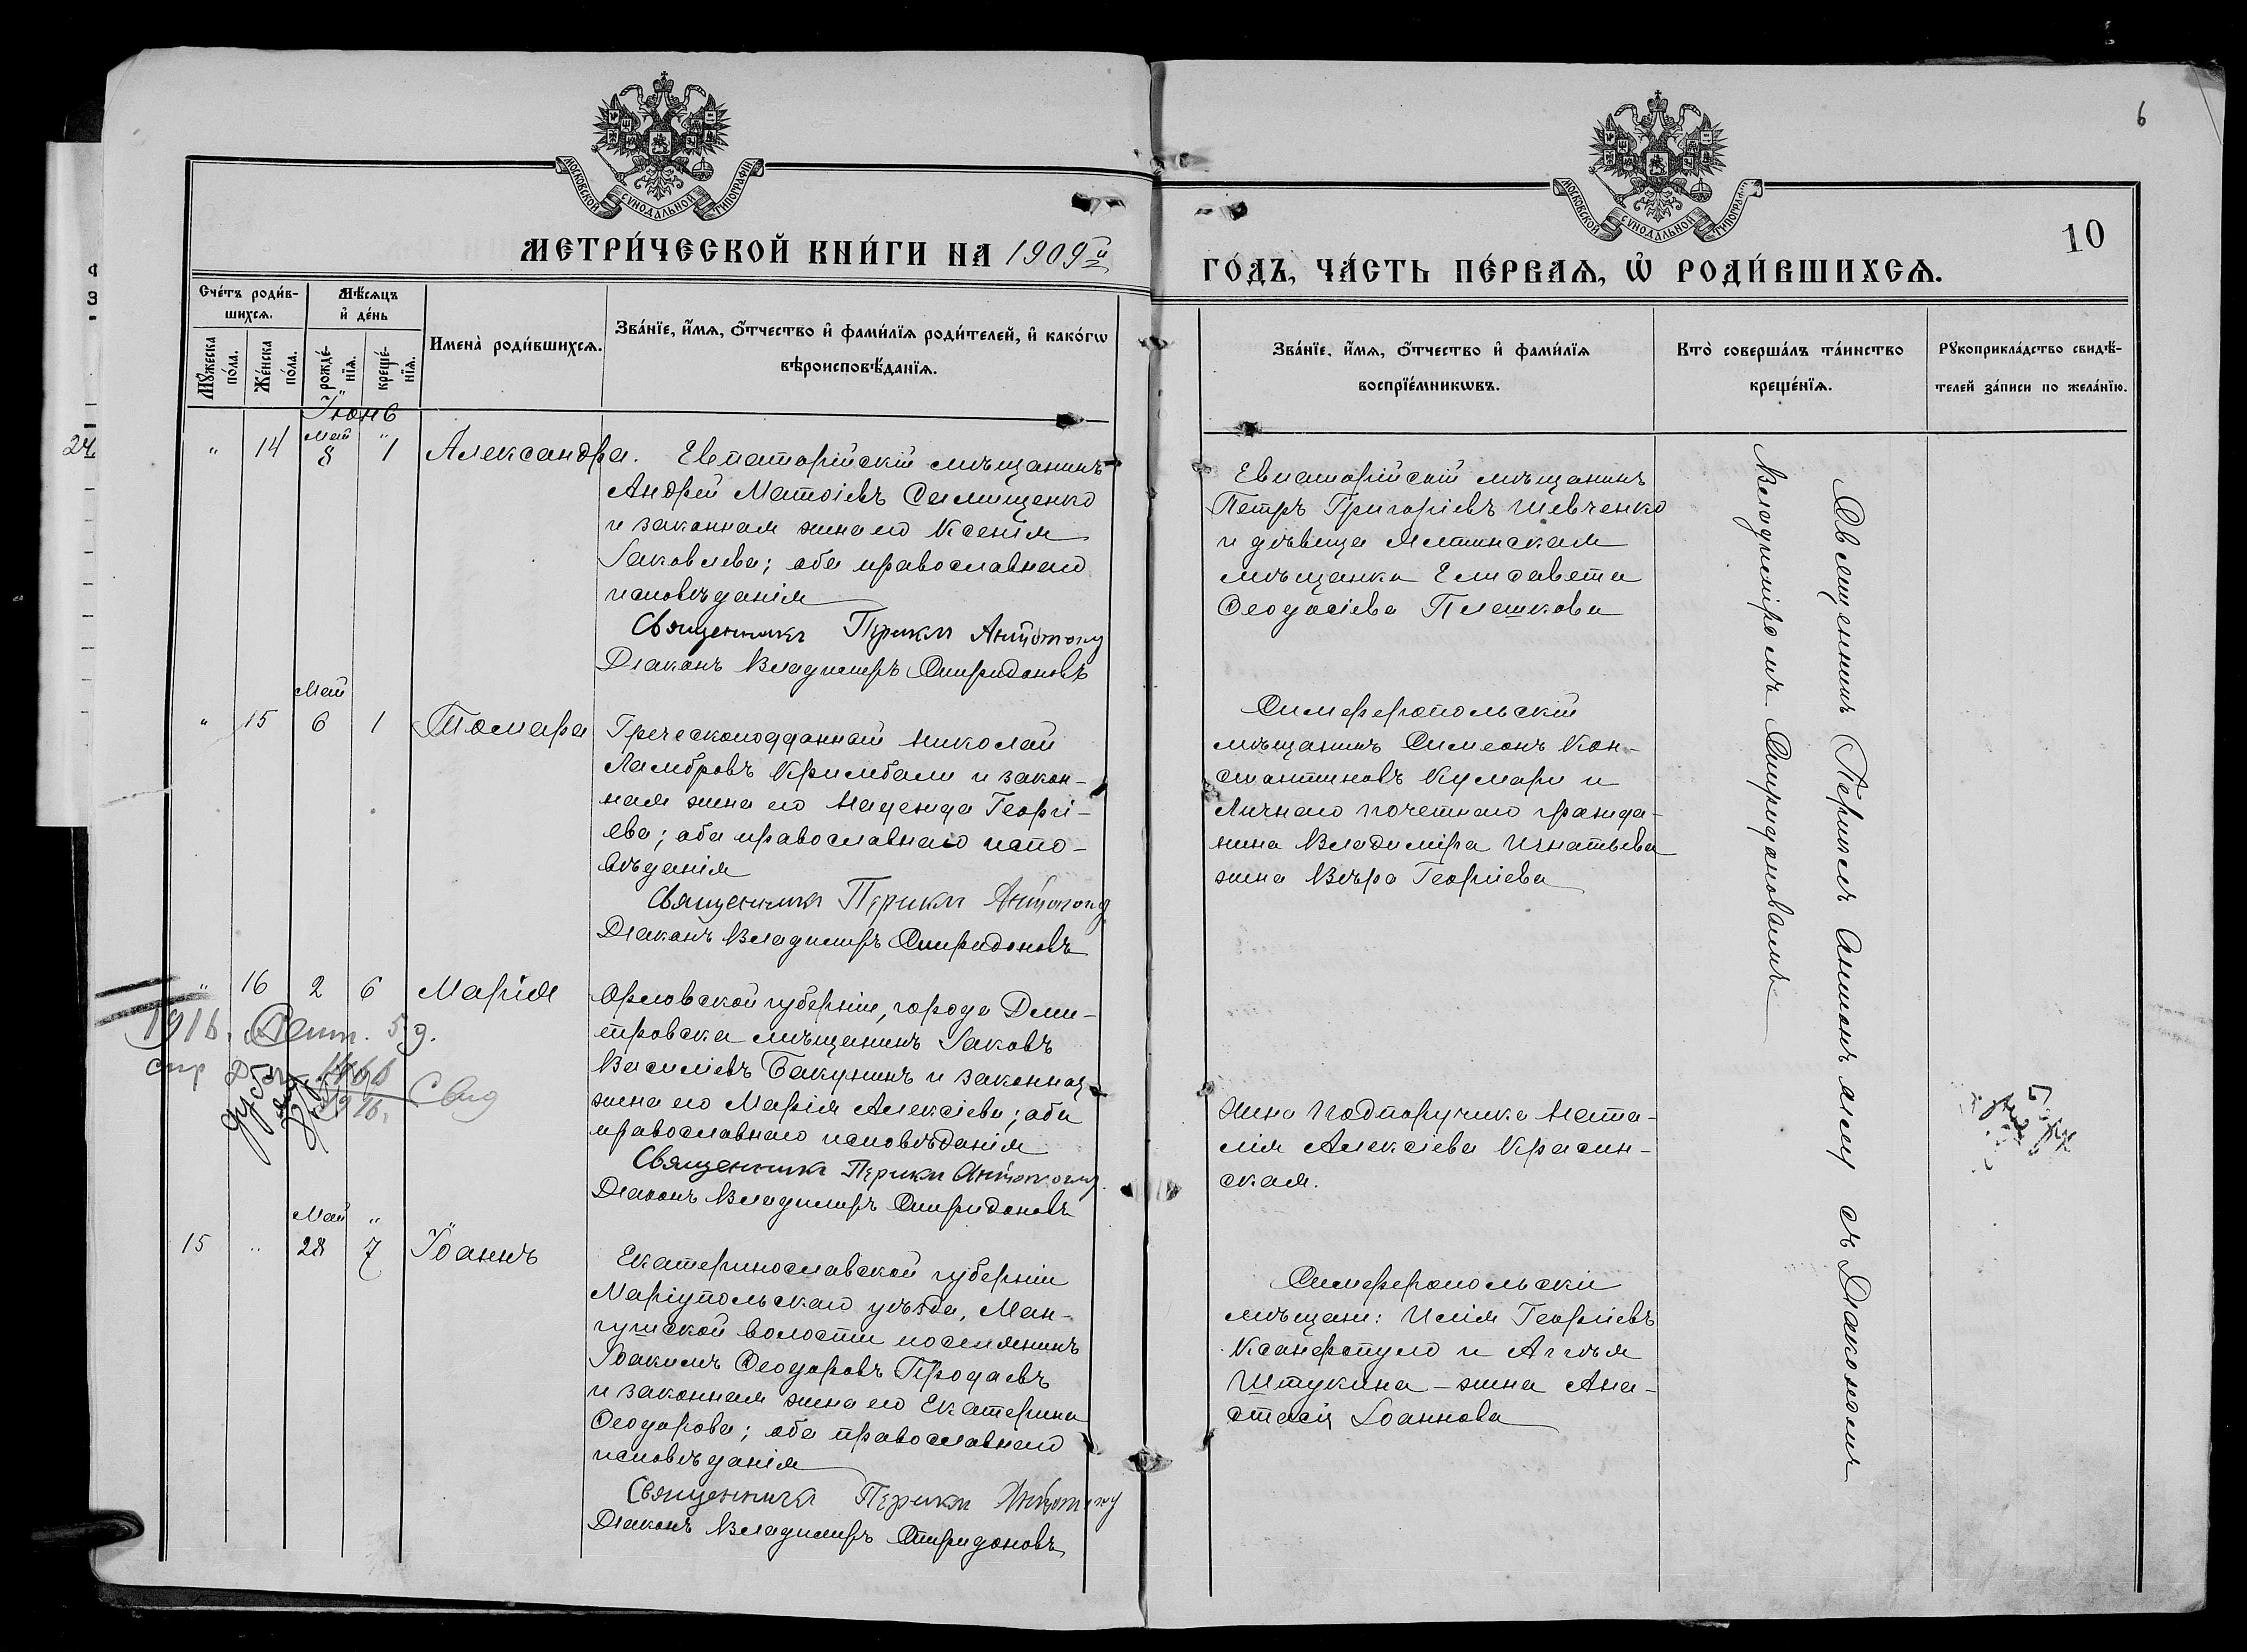 6
10
МОСКОВСКОЙ СѴНОДАЛЬНОЙ ТИПОГРАФІИ
МОСКОВСКОЙ СѴНОДАЛЬНОЙ ТИПОГРАФІИ
МЕТРИ́ЧЕСКОЙ КНИ́ГИ НА 1909й
ГО́ДЪ, ЧА́СТЬ ПЕ́РВАѦ, Ѽ РОДИ́ВШИХСѦ.
Сче́тъ роди́в-
шихсѧ.
Мѣ́сѧцъ
и҆ де́нь
Мꙋ́жеска
по́ла.
Же́нска
по́ла.
рожде́-
нїѧ.
креще́-
нїѧ.
Имена̀ роди́вшихсѧ.
Зва́нїе, и҆́мѧ, ѻ҆́тчество и҆ фами́лїѧ роди́телей, и҆ како́гѡ
вѣроисповѣ́данїѧ.
Зва́нїе, и҆́мѧ, ѻ҆́тчество и҆ фами́лїѧ
воспрїе́мникѡвъ.
Кто̀ соверша́лъ та́инство
креще́нїѧ.
Рꙋкоприкла́дство свидѣ́-
телей за́писи по жела́нїю.
Іюнь
24
" 14 Май 8 " 1 Александра.
Евпаторійскій мѣщанинъ
Андрей Матѳіевъ Силищенко
и законная жена его Ксенія
Іаковлева; оба православнаго
исповѣданія
Священникъ Перикл Антоноу
Діаконъ Владимиръ Спиридоновъ
Евпаторійскій мѣщанинъ
Петръ Григоріевъ Шевченко
и дѣвица Ялтинская
мѣщанка Елисавета
Ѳеодосіева Плешкова
Май
" 15 6 1 Тамара
Греческоподданный Николай
Ламбровъ Кримбали и закон-
ная жена его Надежда Георгі-
ева; оба православнаго испо-
вѣданія
Священникъ Перикл Антоноу
Діаконъ Владимиръ Спиридоновъ
Симферопольскій
мѣщанинъ Симеонъ Кон-
стантиновъ Кумари и
Личнаго почетнаго гражда-
нина Владиміра Игнатьева
жена Вѣра Георгіева
" 16 2 6 Марія
Орловской губерніи, города Дми-
тровска мѣщанинъ Іаковъ
Василіевъ Бакунинъ и законная
жена его Марія Алексіева; оба
православнаго исповѣданія
Священникъ Перикл Антоноу
Діаконъ Владимиръ Спиридоновъ
жена подпоручика Ната-
лія Алексіева Красин-
ская.
1916. Сент. 5 д.
Май "
15 " 28 7 Іоаннъ
Екатеринославской губерніи
Маріупольскаго уѣзда, Ман-
гушской волости поселянинъ
Іоакимъ Ѳеодоровъ Продаевъ
и законная жена его Екатерина
Ѳеодорова; оба православнаго
исповѣданія
Священникъ Перикл Антоноу
Діаконъ Владимиръ Спиридоновъ
Симферопольскіе
мѣщане: Илія Георгіевъ
Ксанфопуло и
Штукина - жена Ана-
стасія Іоаннова
Священникъ Периклъ Антоніади съ Діакономъ
Владиміромъ Спиридоновымъ